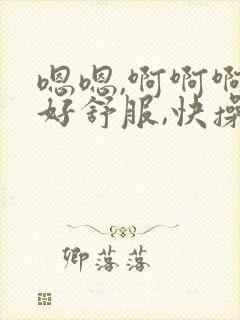 嗯嗯,啊啊啊
好舒服,快操
卿落落